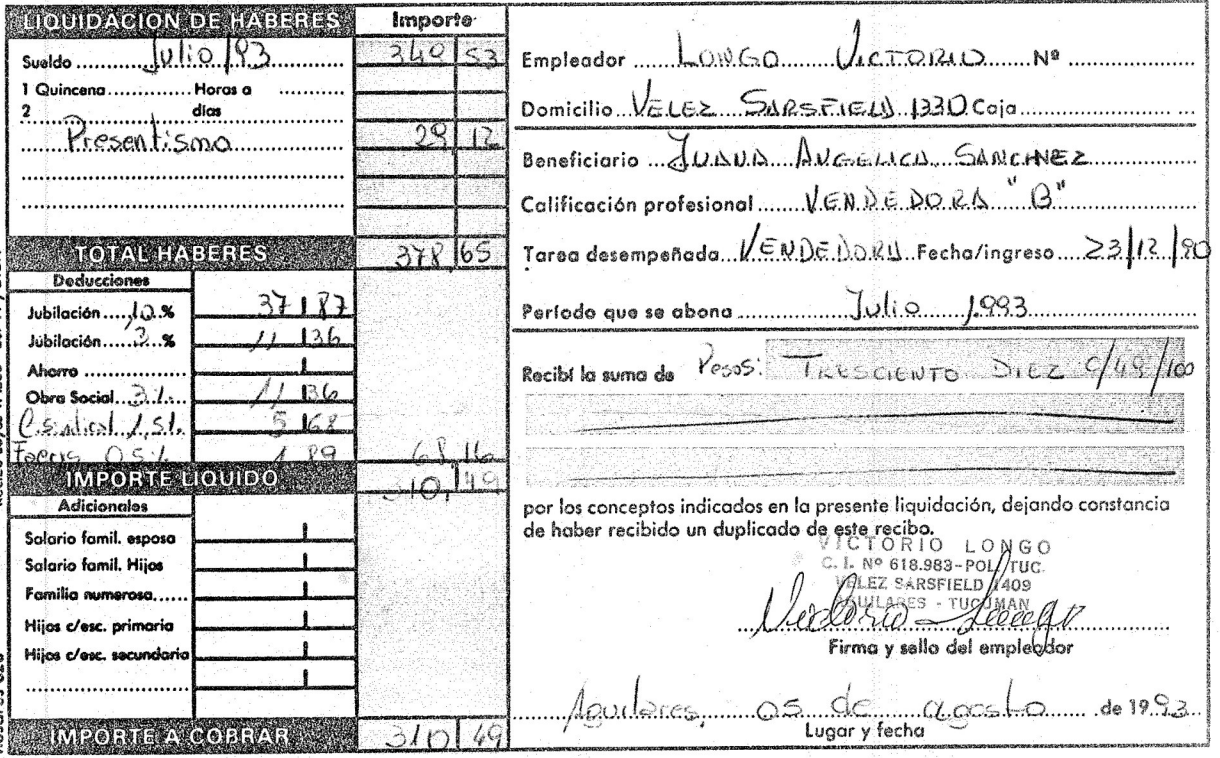 LIQUIDACION DE HABERES Importe
Sueldo Julio/93 349 53
1 Quincena Horas a
2 días
Presentismo 29 12
TOTAL HABERES 378,65
Deducciones
Jubilación 10 % 37 87
Jubilación 3 % 11 36
Ahorro
Obra Social 3% 11 36
1,5% 5 68
Faecys 0,5% 1 89 68,16
IMPORTE LIQUIDO 310,49
Adicionales
Salario famil. esposa
Salario famil. Hijos
Familia numerosa
Hijos c/esc. primaria
Hijos c/esc. secundaria
IMPORTE A COBRAR 310 49
Empleador LONGO VICTORIO Nº
Domicilio VELEZ SARSFIELD 1330 Caja
Beneficiario JUANA ANGELICA SANCHEZ
Calificación profesional VENDEDORA "B"
Tarea desempeñada VENDEDORA Fecha/ingreso 23/12/90
Período que se abona Julio 1.993
Recibí la suma de Pesos: TRESCIENTO DIEZ C/49/100
por los conceptos indicados en la presente liquidación, dejando constancia
de haber recibido un duplicado de este recibo.
VICTORIO LONGO
C. I. Nº 618.983-POL. TUC.
VELEZ SARSFIELD 1409
AGUILARES - TUCUMAN
Victorio Longo
Firma y sello del empleador
Aguilares, 05 de agosto de 1993
Lugar y fecha